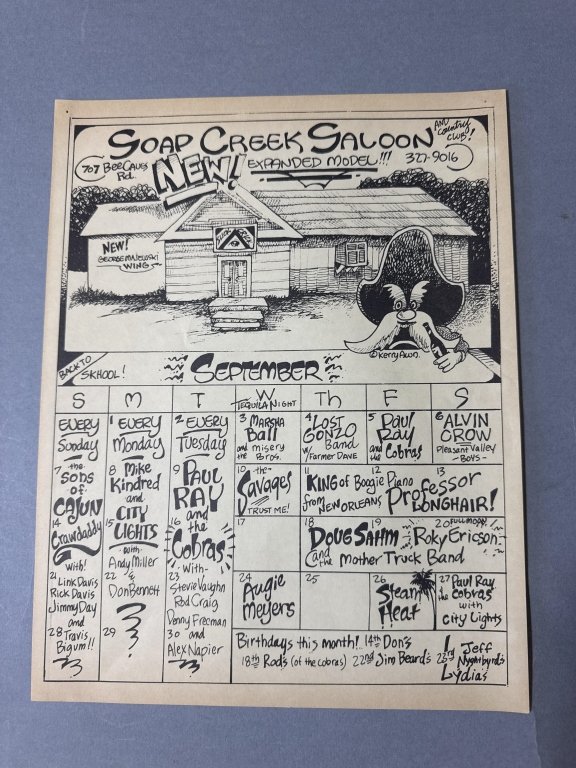 SOAP CREEK SALOON AND Country CLUB!
707 Bee Caves Rd.
NEW! EXPANDED MODEL!!! 327-9016
NEW!
GEORGE MAJEWSKI
WING
©Kerry Awn.
BACK TO SKHOOL!
SEPTEMBER
S M T W Th F S
TEQUILA NIGHT
EVERY Sunday
7 the SONS of CAJUN
14 Crawdaddy
with!
21 Link Davis
Rick Davis
Jimmy Day
and
28 Travis
Bigum!!
1 EVERY Monday
8 Mike Kindred and
CITY LIGHTS
15 with
Andy Miller
22 &
Don Bennett
29
2 EVERY Tuesday
9 PAUL RAY
and the
16 Cobras
with
23 Stevie Vaughn
Rod Craig
Denny Freeman
30 and
Alex Napier
3 MARSHA Ball
and misery Bros.
4 LOST GONZO Band
w/Former DAVE
5 Paul Ray
and the Cobras
6 ALVIN CROW
Pleasant Valley
BOYS
10 the Savages
TRUST ME!
11 12 13
KING of Boogie Piano
from NEW ORLEANS Professor LONGHAIR!
17
18 19 20 FULL MOON!
DOUG SAHM Roky Erickson
and the Mother Truck Band
24 Augie Meyers
25
26 Steam Heat
27 Paul Ray & the cobras with City Lights
Birthdays this month! 14th Don's
18th Rod's (of the cobras) 22nd Jim Beard's 23rd Jeff Nightbyrd's
Lydia's